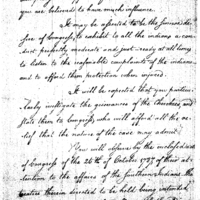 you are believed to have much influence.
It may be asserted to be the
of Congress, to exhibit to all the indians a con
duct perfectly moderate and just - ready at all times
to listen to the reasonable complaints of the indians
and to afford them protection when injured.
It will be expected that you particu
larly instigate the grievances of the Cherokees, and
state them to Congress, who will afford all the re
lief that the nature of the case may admit.
You will observe by the inclosed act
of Congress of the 26th of October 1787 of their at
tention to the affairs of the southern Indians. the
treaties therein directed to be held being